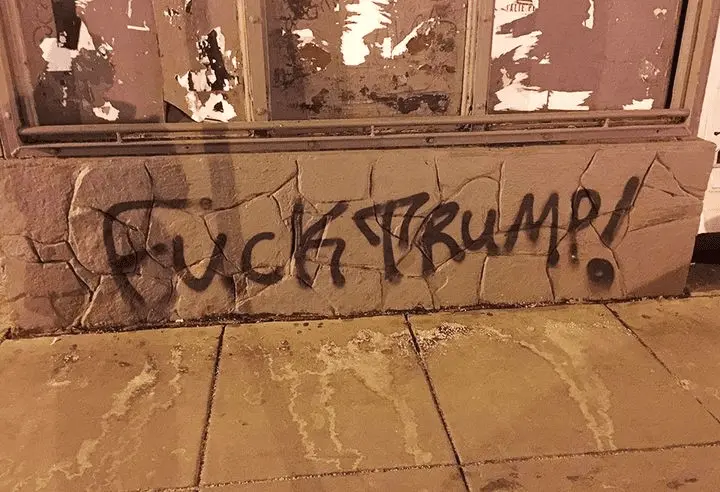 Fuck TRuMP!